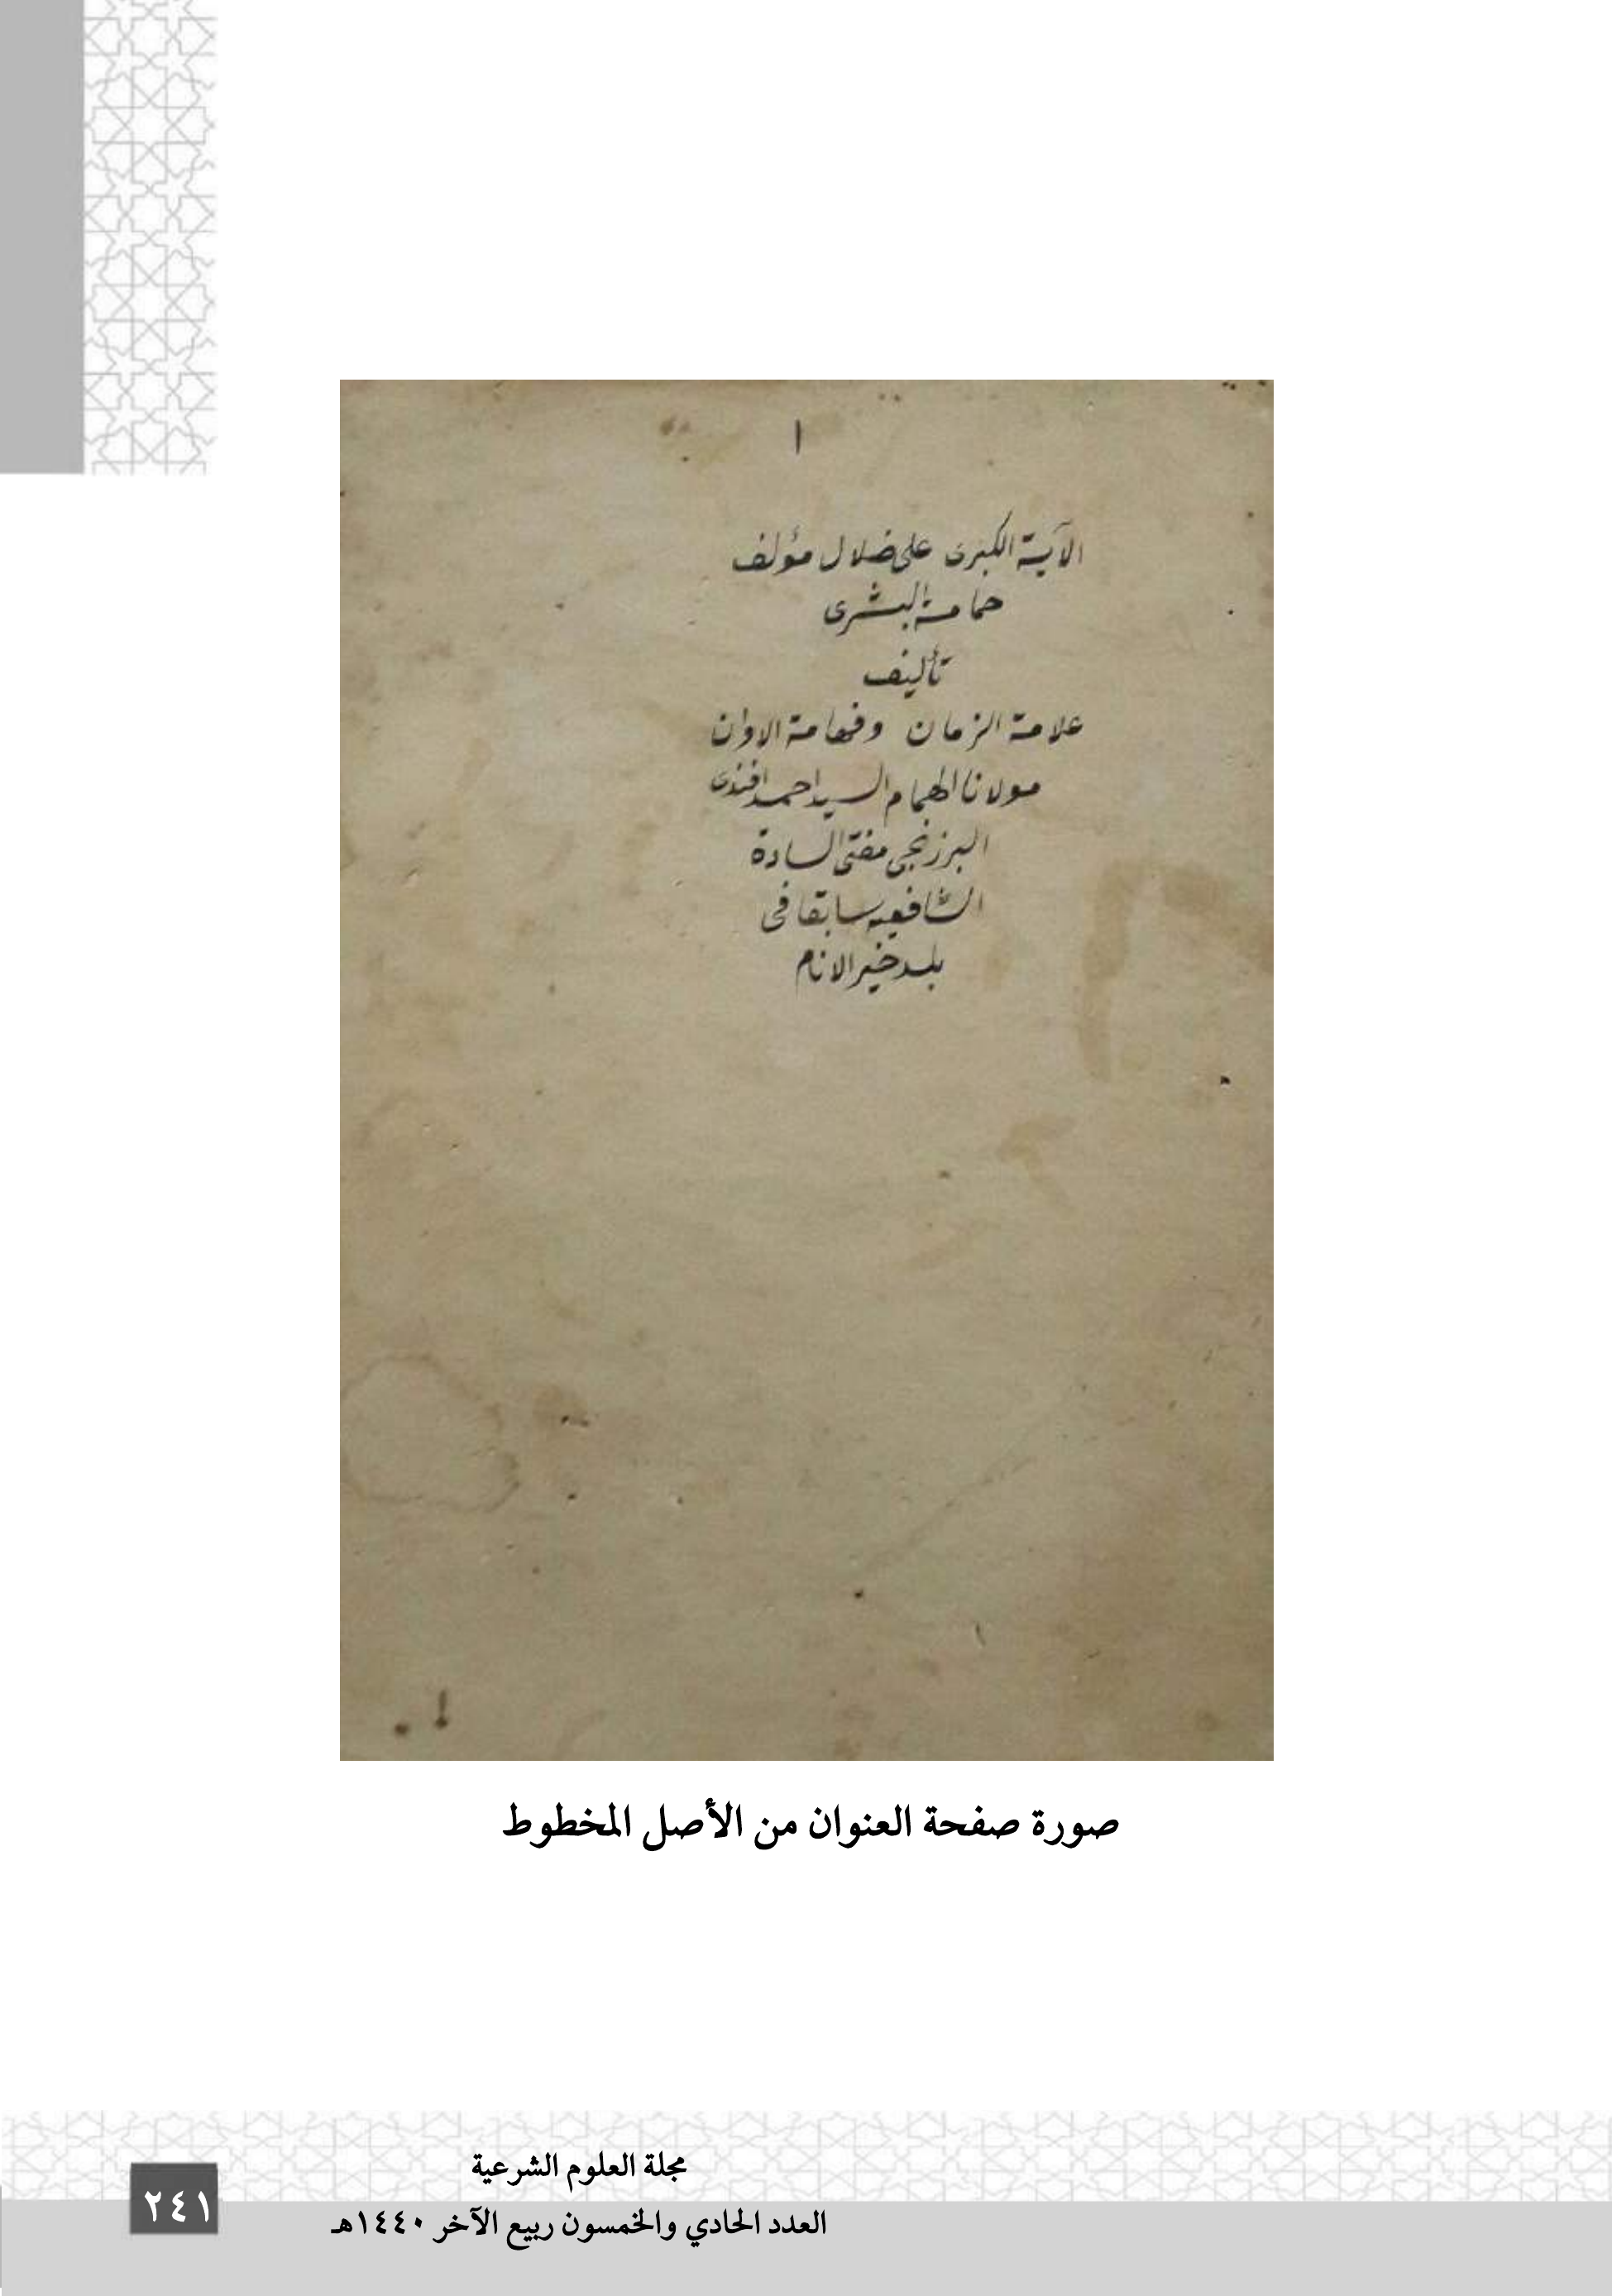 ١
الآية الكبرى على ضلال مؤلف
حمامة البشرى
تأليف
علامة الزمان وفهامة الاوان
مولانا الهمام السيد احمد افندى
البرزنجى مفتى السادة
الشافعيه سابقا فى
بلد خير الانام
صورة صفحة العنوان من الأصل المخطوط
مجلة العلوم الشرعية
العدد الحادي والخمسون ربيع الآخر ١٤٤٠هـ
٢٤١